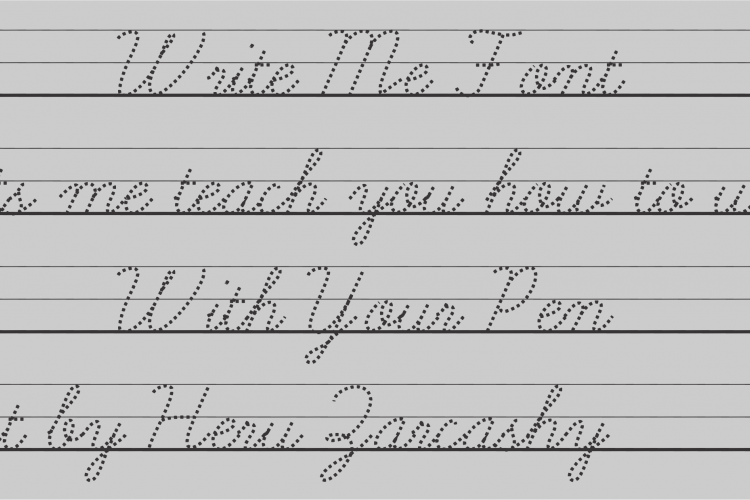 Write Me Font
ts me teach you how to w
With Your Pen
t by Heru Zancashy